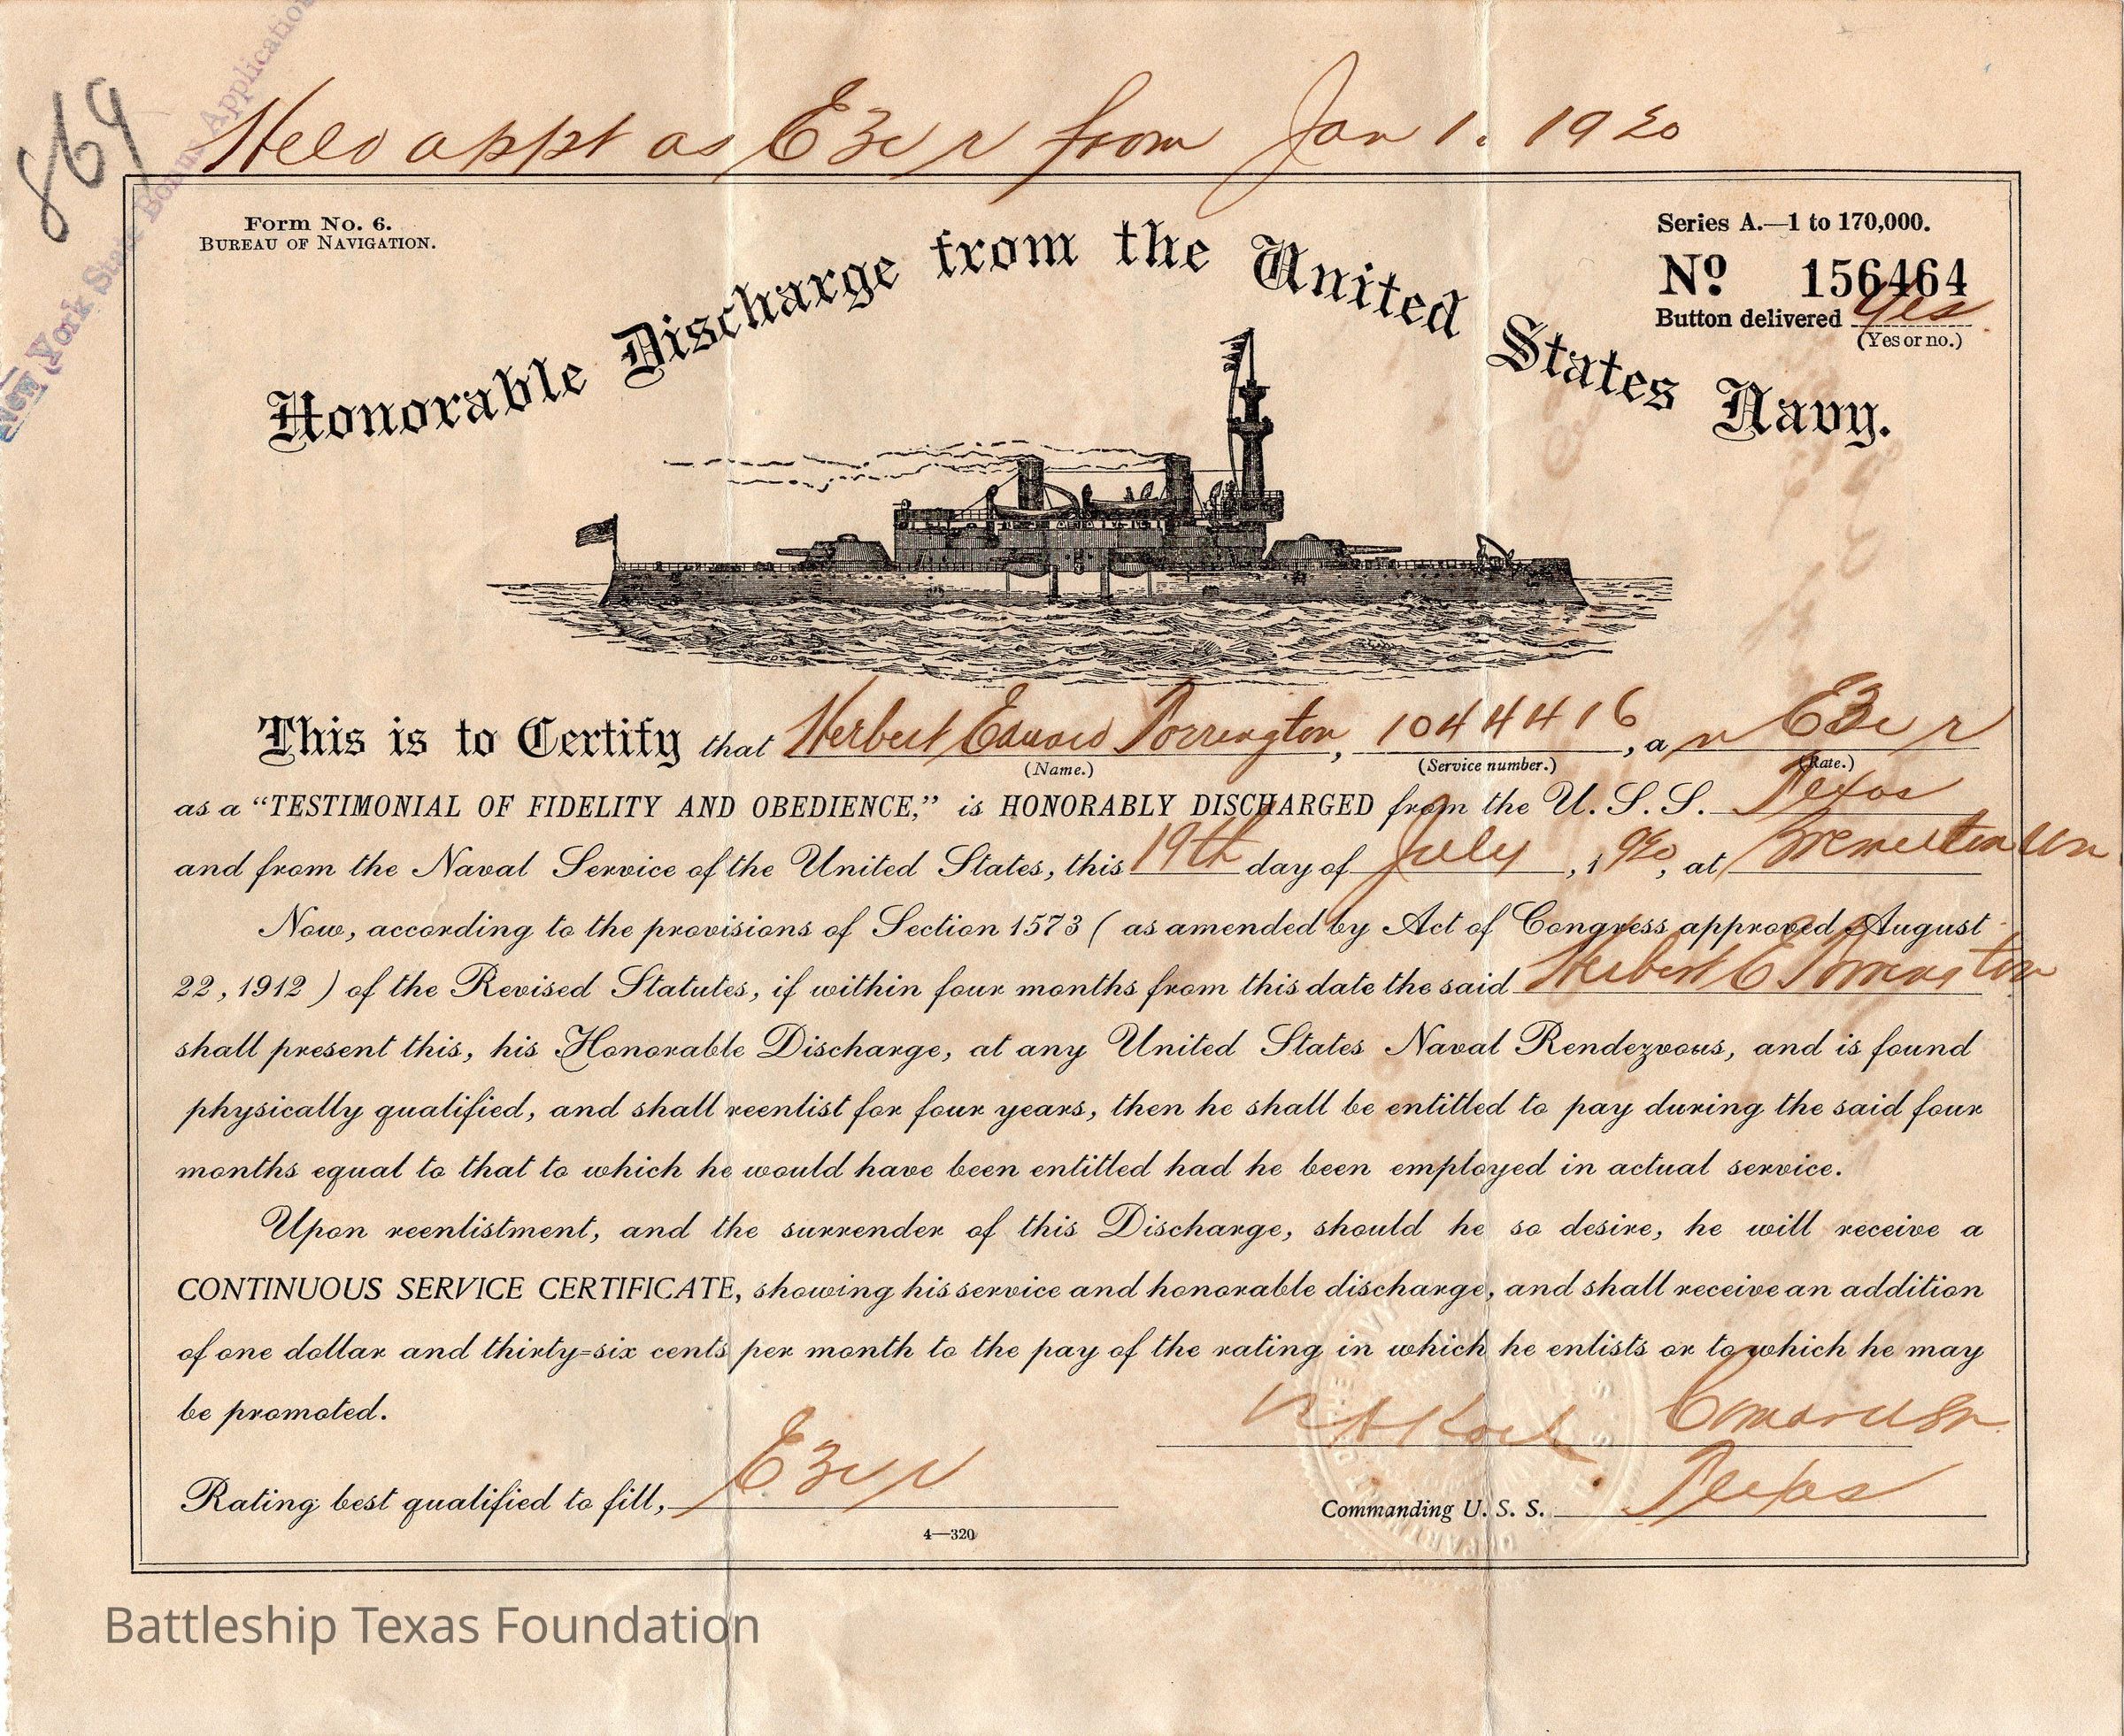 869
New York State Bonus Application
Held appt as E3cr from Jan 1. 1920
Form No. 6.
BUREAU OF NAVIGATION.
Series A.—1 to 170,000.
No 156464
Button delivered Yes
(Yes or no.)
Honorable Discharge from the United States Navy.
This is to Certify that Herbert Edward Torrington, 1044416, an E3cr
(Name.) (Service number.) (Rate.)
as a “TESTIMONIAL OF FIDELITY AND OBEDIENCE,” is HONORABLY DISCHARGED from the U. S. S. Texas
and from the Naval Service of the United States, this 19th day of July, 1920, at Bremerton Wn
Now, according to the provisions of Section 1573 ( as amended by Act of Congress approved August
22, 1912 ) of the Revised Statutes, if within four months from this date the said Herbert E Torrington
shall present this, his Honorable Discharge, at any United States Naval Rendezvous, and is found
physically qualified, and shall reenlist for four years, then he shall be entitled to pay during the said four
months equal to that to which he would have been entitled had he been employed in actual service.
Upon reenlistment, and the surrender of this Discharge, should he so desire, he will receive a
CONTINUOUS SERVICE CERTIFICATE, showing his service and honorable discharge, and shall receive an addition
of one dollar and thirty=six cents per month to the pay of the rating in which he enlists or to which he may
be promoted.
R A Koch. Commander
Rating best qualified to fill, E3cr
Commanding U. S. S. Texas
4—320
Battleship Texas Foundation